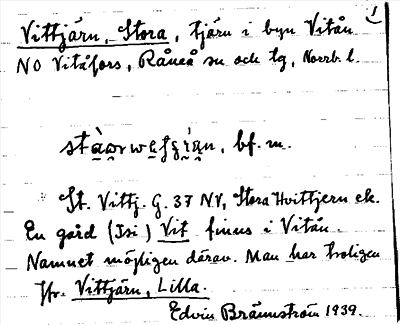 Vittjärn, Stora, tjärn i byn Vitån 1
NO Vitåfors, Råneå sn och tg, Norrb. l.
bf. m.
St. Vittj. G. 37 NV, Stora Hvittjern ek.
En gård (Isi) Vit finns i Vitån.
Namnet möjligen därav. Man har troligen
Jfr. Vittjärn, Lilla.
Edvin Brännström 1939.